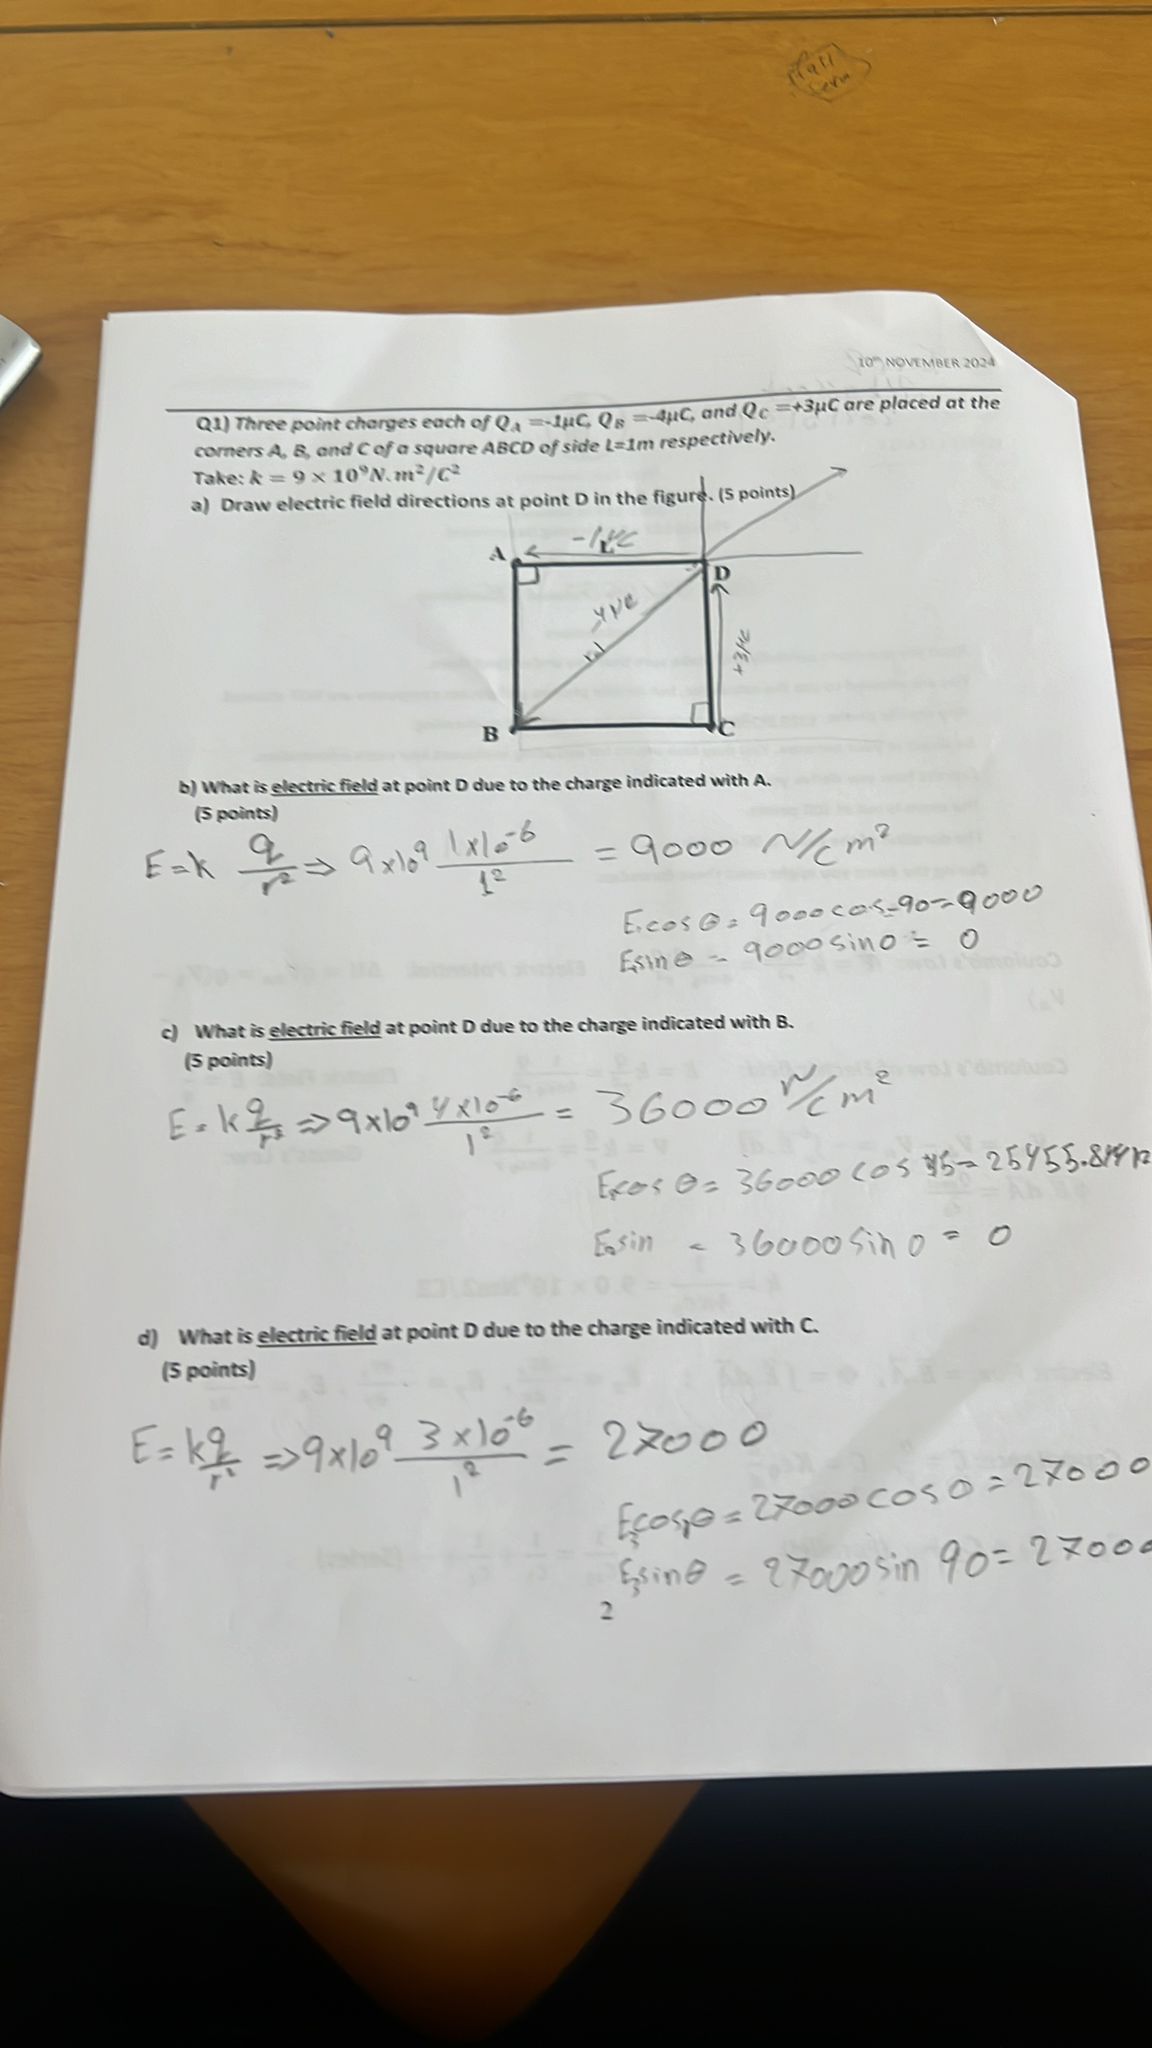 10th NOVEMBER 2024
Q1) Three point charges each of Q_A =-1μC, Q_B =-4μC, and Q_C =+3μC are placed at the
corners A, B, and C of a square ABCD of side L=1m respectively.
Take: k = 9 × 10⁹N.m²/C²
a) Draw electric field directions at point D in the figure. (5 points)
A -1μC
L
D
+3μC
B C
b) What is electric field at point D due to the charge indicated with A.
(5 points)
E=k q/r² ⇒ 9x10⁹ 1x10⁻⁶/1² = 9000 N/C m²
E₁cos θ = 9000 cos-90=-9000
E₁sin θ = 9000 sin 0 = 0
c) What is electric field at point D due to the charge indicated with B.
(5 points)
E=k q/r² ⇒ 9x10⁹ 4x10⁻⁶/1² = 36000 N/C m²
E₂cos θ = 36000 cos 45 = 25455.8
E₂sin = 36000 sin 0 = 0
d) What is electric field at point D due to the charge indicated with C.
(5 points)
E=k q/r² ⇒ 9x10⁹ 3x10⁻⁶/1² = 27000
E₃cos θ = 27000 cos 0 = 27000
E₃sin θ = 27000 sin 90 = 27000
2